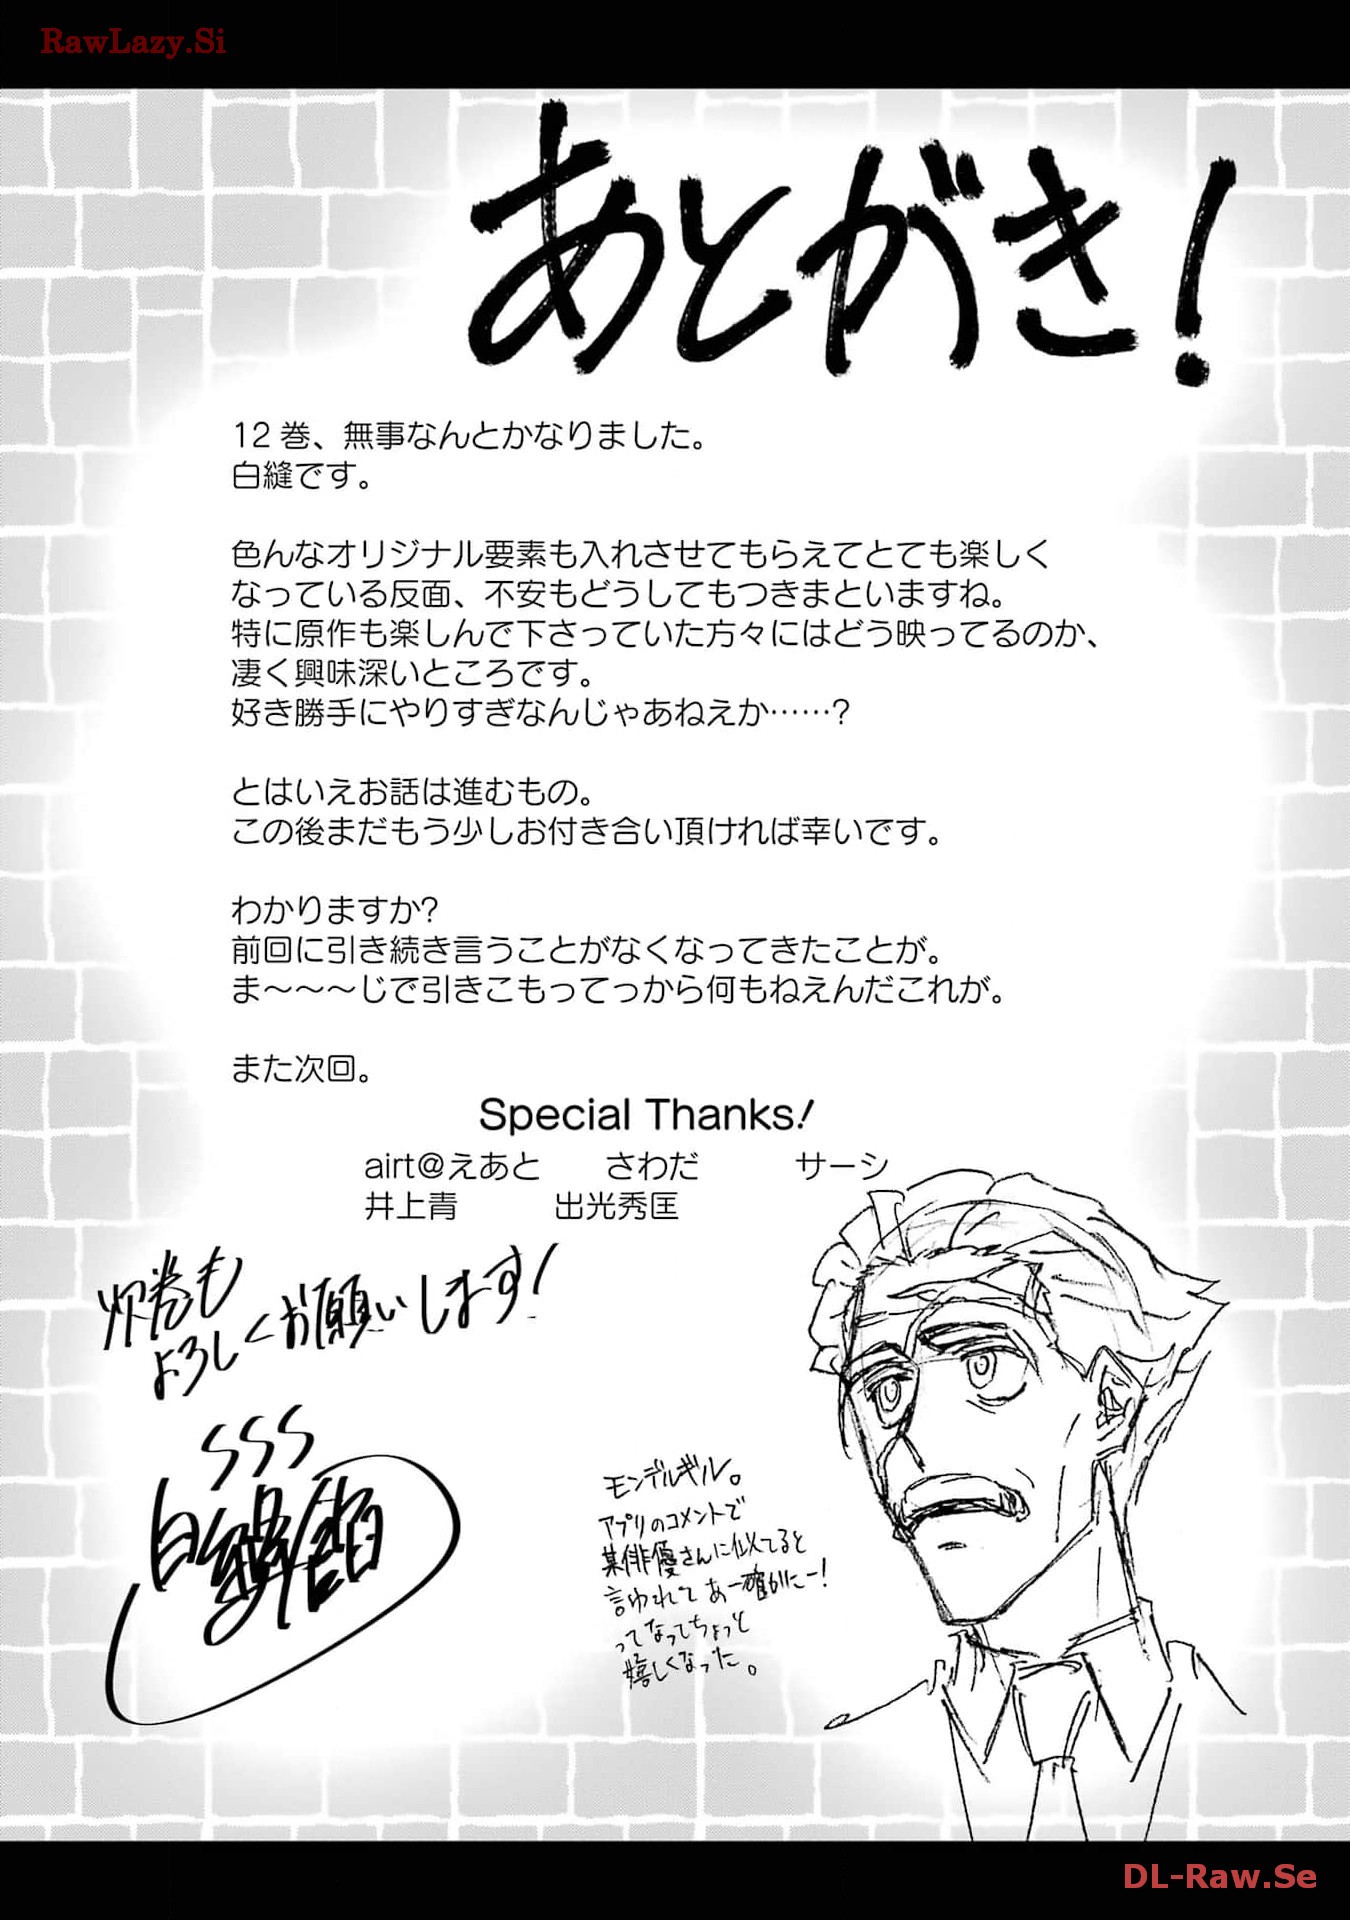 RawLazy.Si
あとがき!
12 巻、無事なんとかなりました。
白縫です。
色んなオリジナル要素も入れさせてもらえてとても楽しく
なっている反面、不安もどうしてもつきまといますね。
特に原作も楽しんで下さっていた方々にはどう映ってるのか、
凄く興味深いところです。
好き勝手にやりすぎなんじゃあねえか……?
とはいえお話は進むもの。
この後まだもう少しお付き合い頂ければ幸いです。
わかりますか?
前回に引き続き言うことがなくなってきたことが。
ま〜〜〜じで引きこもってっから何もねえんだこれが。
また次回。
Special Thanks!
airt@えあと　さわだ　サーシ
井上青　出光秀匡
次巻も
よろしくお願いします!
SSS
モンデルギル。
アプリのコメントで
某俳優さんに似てると
言われて あー確かにー!
ってなってちょっと
嬉しくなった。
DL-Raw.Se